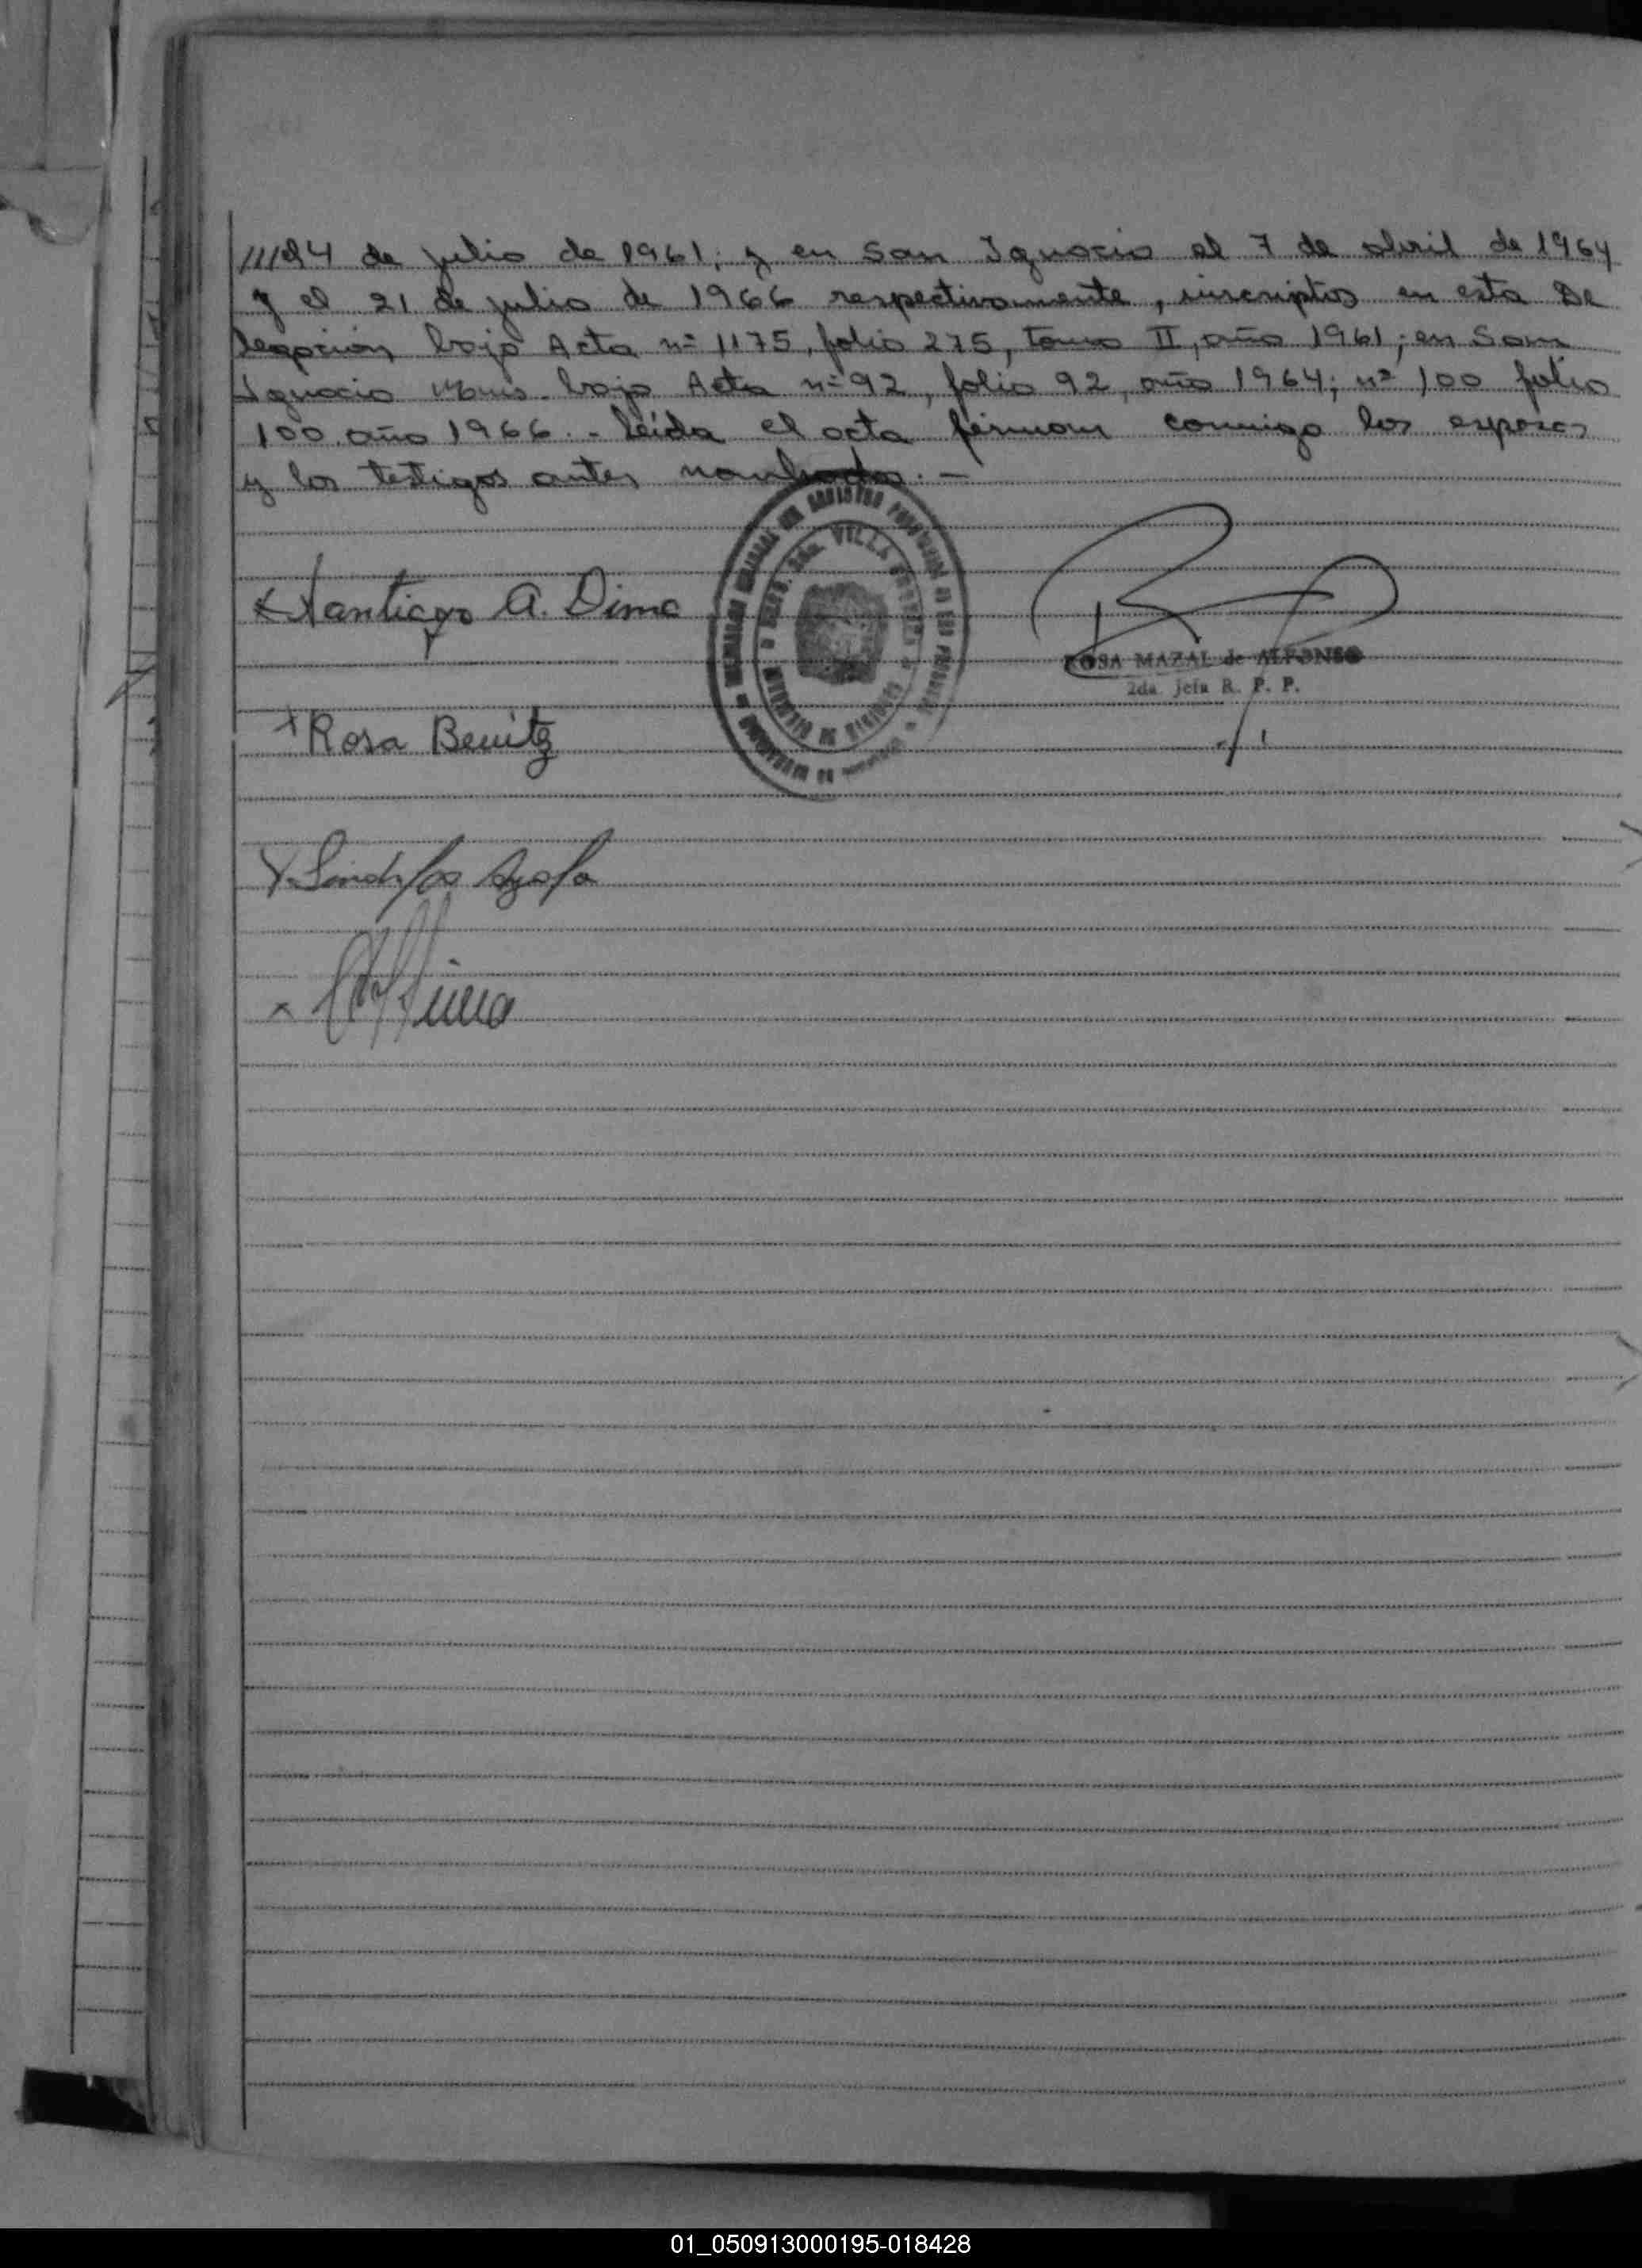 ///24 de julio de 1961; y en San Ignacio el 7 de abril de 1964
y el 21 de julio de 1966 respectivamente, inscriptos en esta De
legación bajo Acta nº 1175, folio 275, tomo II, año 1961; en San
Ignacio Mnes. bajo Acta nº 92, folio 92, año 1964; nº 100 folio
100. año 1966. - leída el acta firman conmigo los esposos
y los testigos antes nombrados. -
Santiago A. Dima
VILLA
ROSA MAZAL de ALFONSO
2da. Jefa R. P. P.
Rosa Benitz
01_050913000195-018428